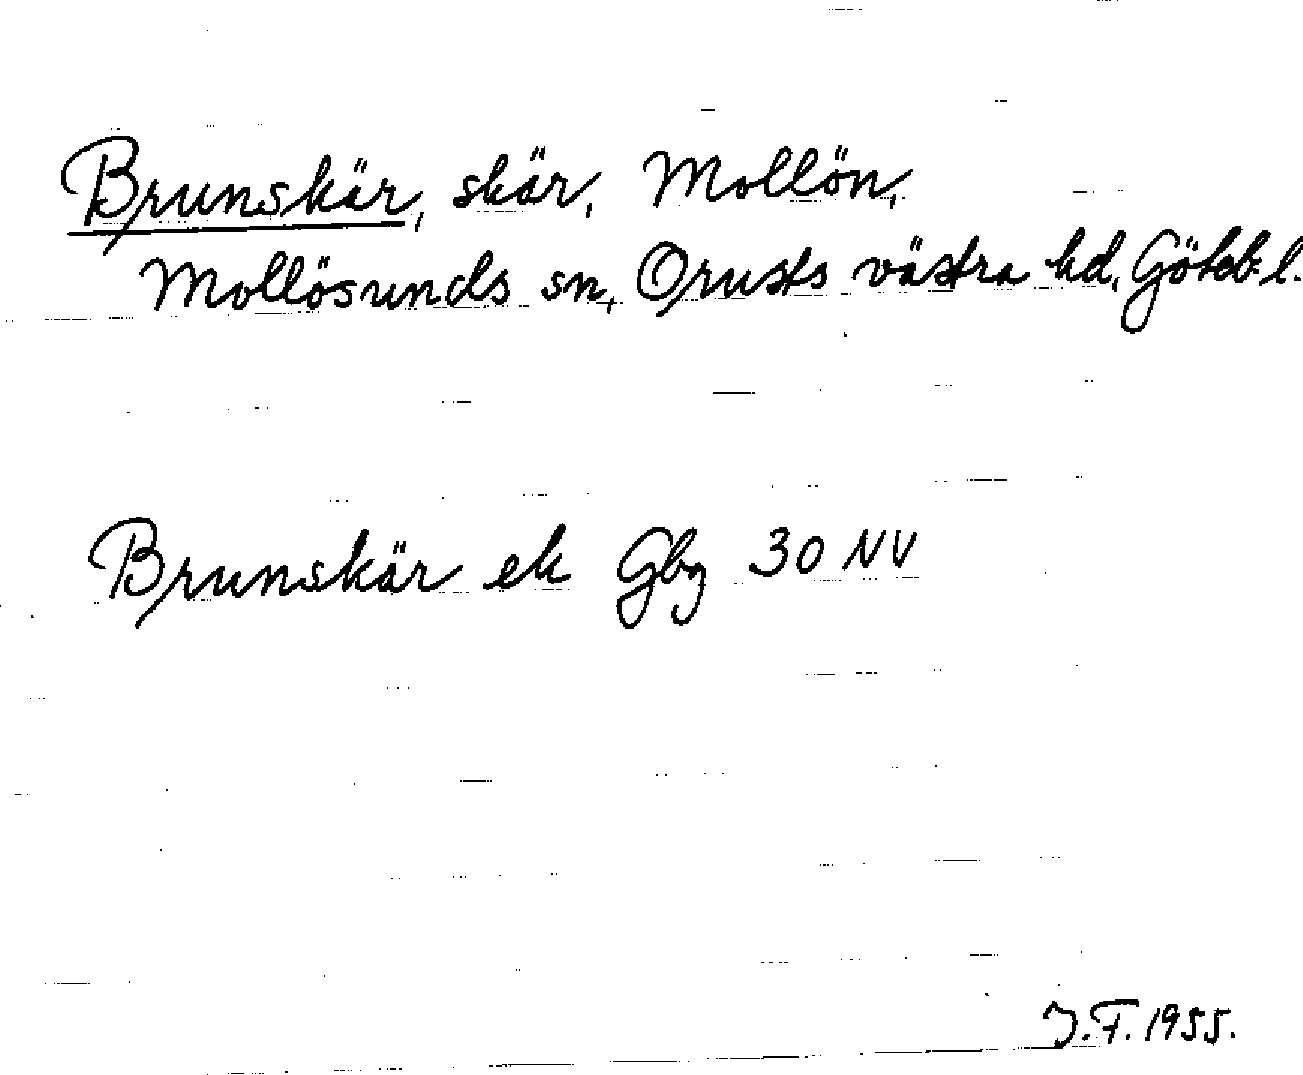 Brunskär, skär, Mollön,
Mollösunds sn, Orusts västra hd, Göteb. l.
Brunskär ek Gbg 30 NV
J.F. 1955.